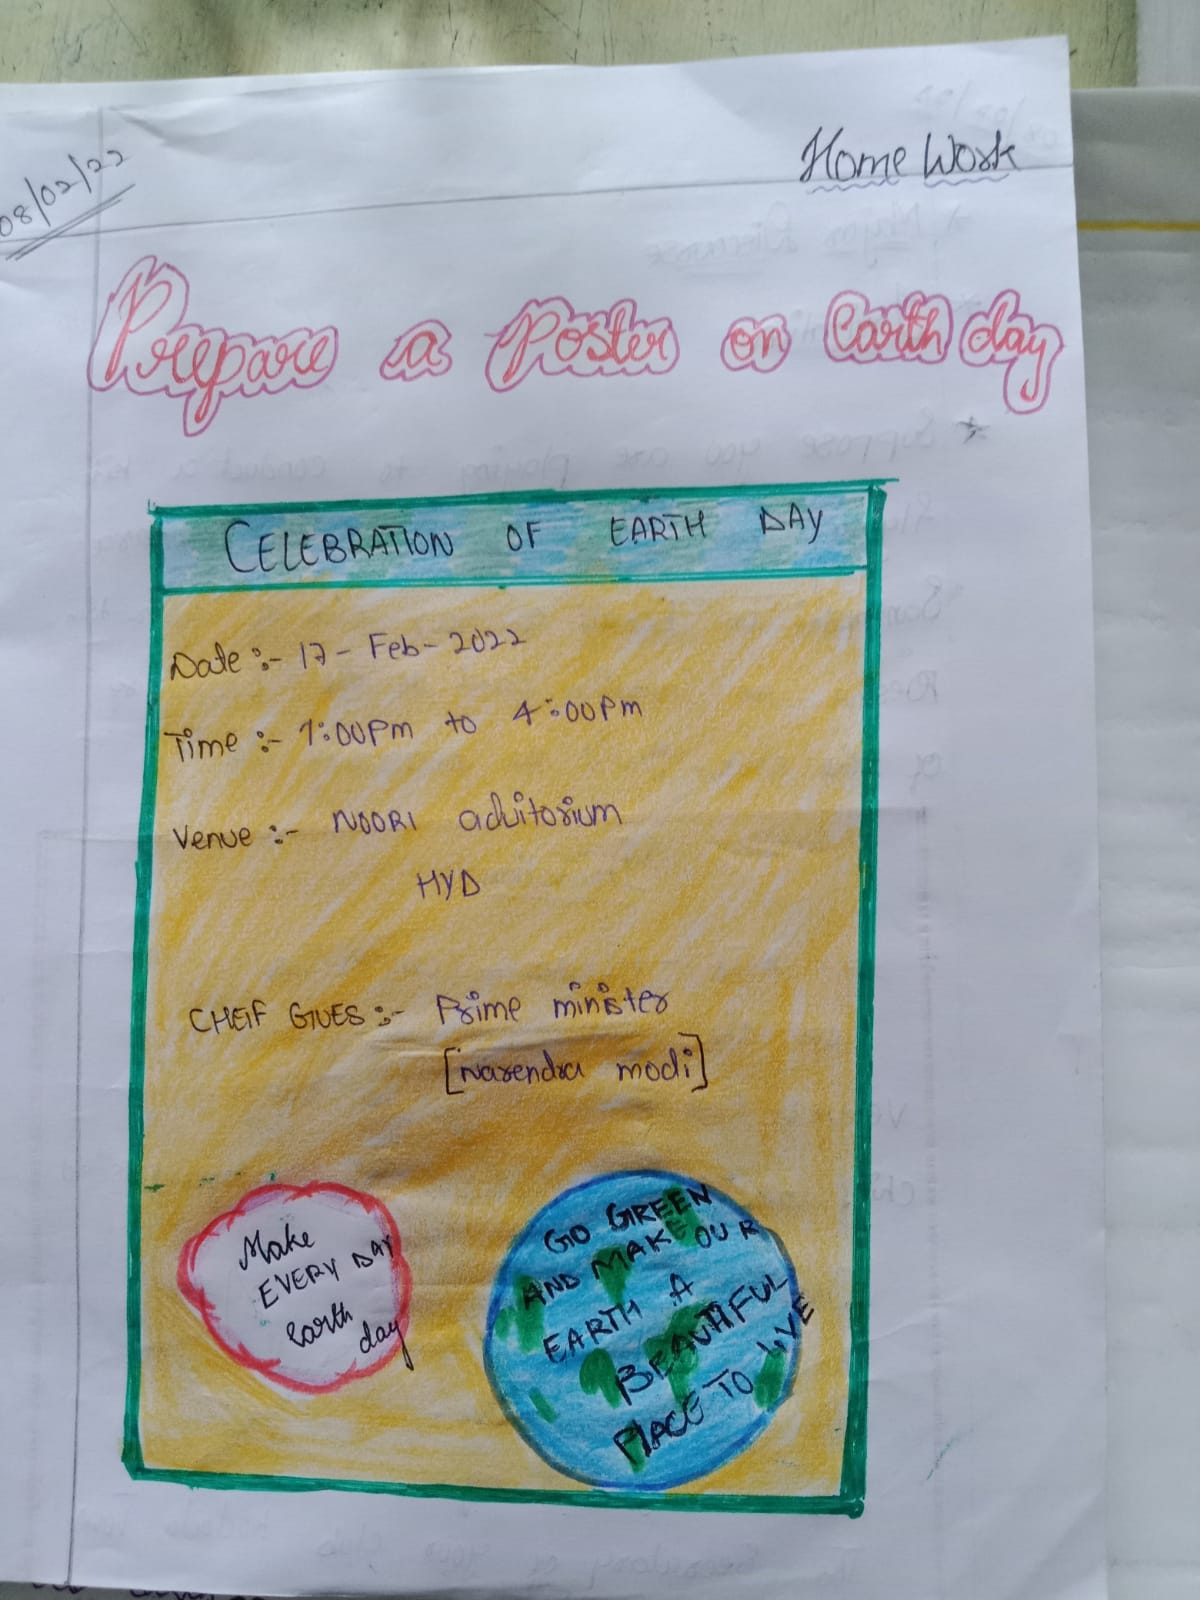 08/02/22
Home Work
Prepare a Poster on Earth day
CELEBRATION OF EARTH DAY
Date :- 17-Feb-2022
Time :- 1:00pm to 4:00pm
Venue :- NOORI aduitorium
HYD
CHEIF GUES :- Prime minister
[Narendra modi]
Make
EVERY DAY
Earth
day
GO GREEN
AND MAKE OUR
EARTH A
BEAUTIFUL
PLACE TO LIVE